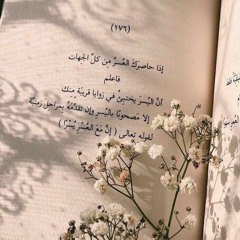 (١٧٦)
إذا حاصرك العُسرُ من كلّ الجهات
فاعلم
أنّ اليُسرَ يختبئُ في زوايا قريبَة مِنك
إلا مصحوبًا باليُسرِ وإن
بمراحل زمنيّة
لقوله تعالى ( إنّ مَعَ العُسْرِ يُسْرًا )